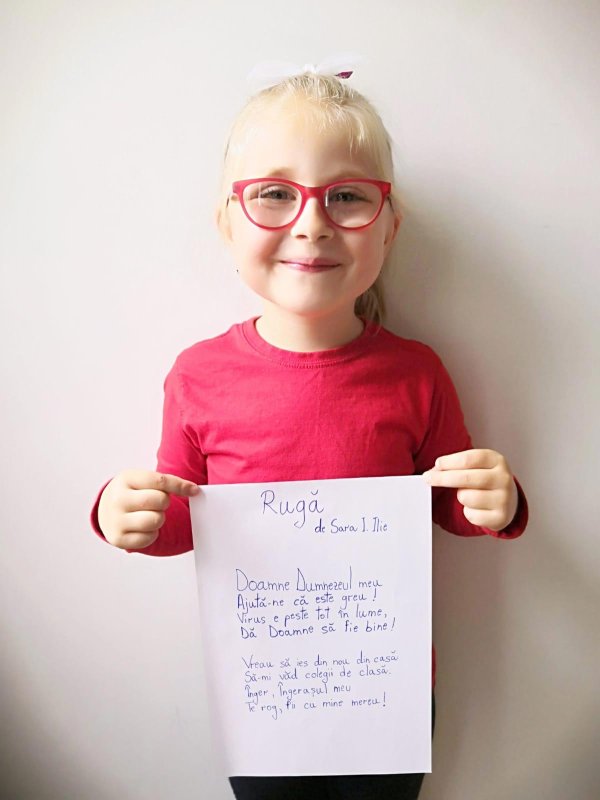 Rugă
de Sara I. Ilie
Doamne Dumnezeul meu
Ajută-ne că este greu!
Virus e peste tot în lume,
Dă Doamne să fie bine!
Vreau să ies din nou din casă
Să-mi văd colegii de clasă.
Înger, Îngerașul meu
Te rog, fii cu mine mereu!